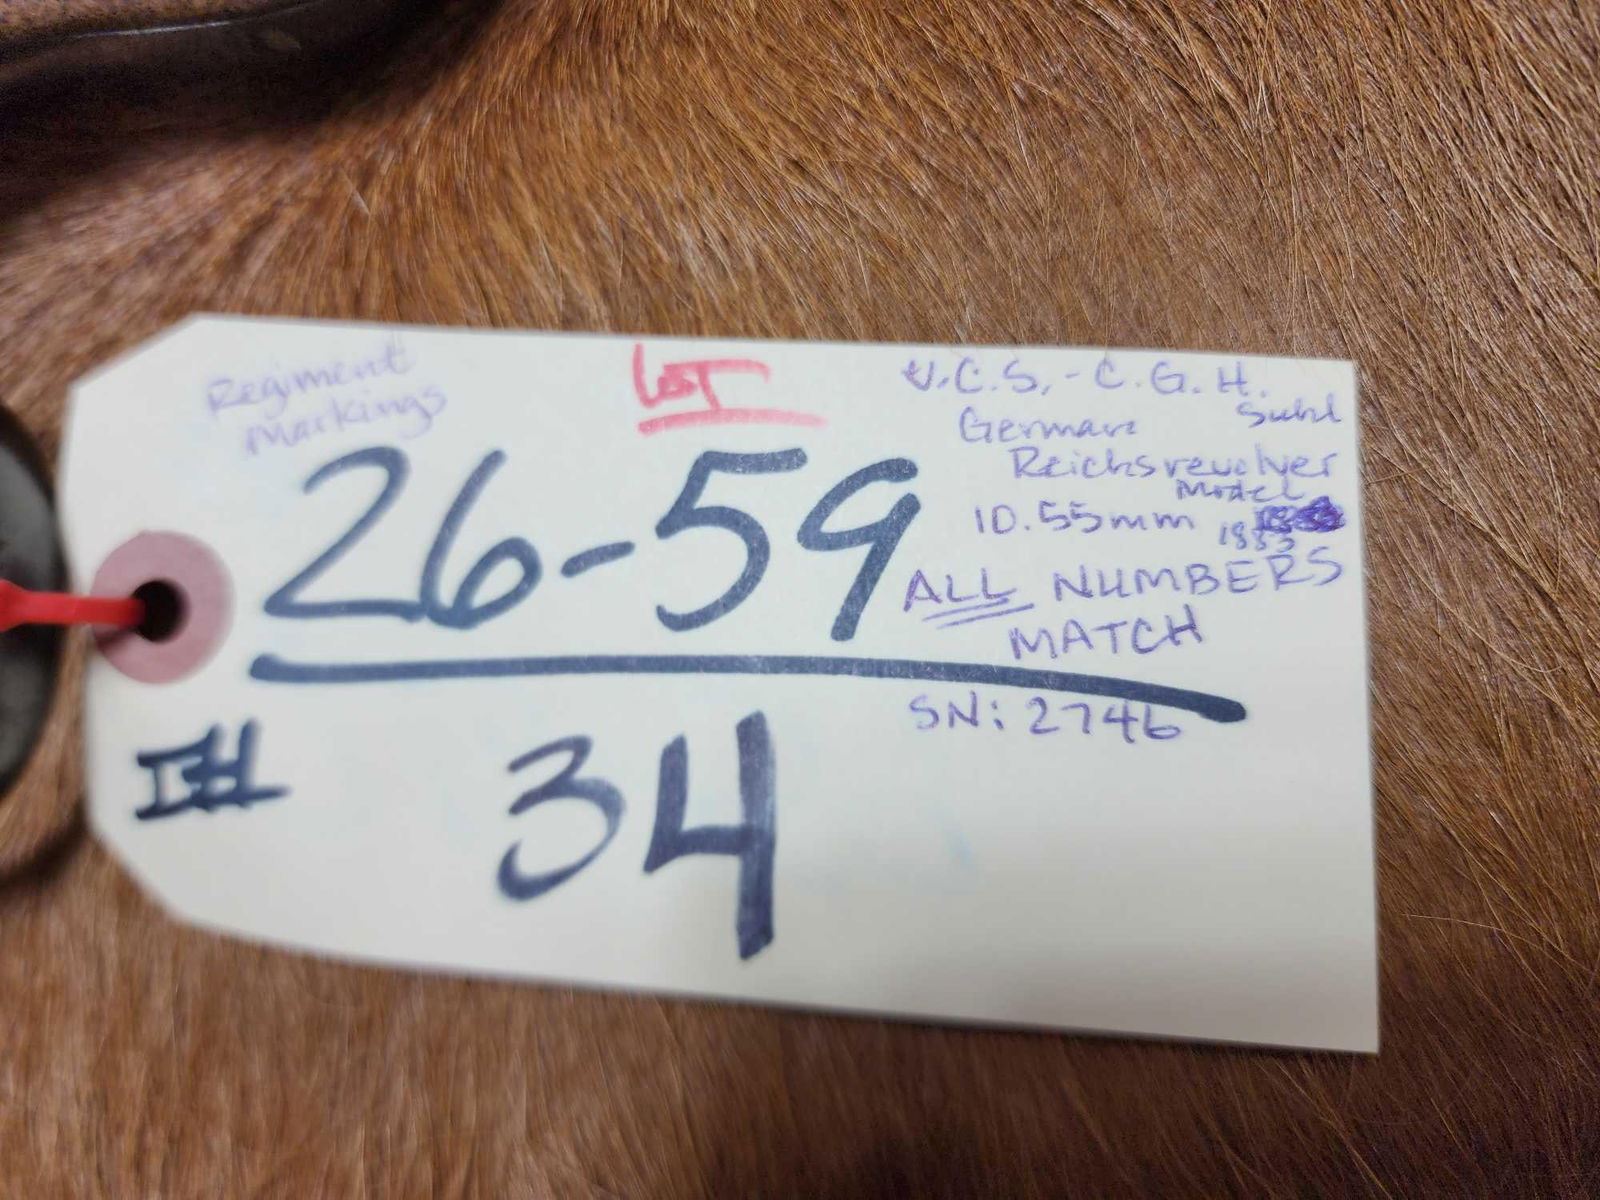 Regiment
Markings
LOT
26-59
34
V.C.S. - C.G.H.
Suhl
German
Reichsrevolver
Model
10.55mm
1883
ALL NUMBERS
MATCH
SN: 2746